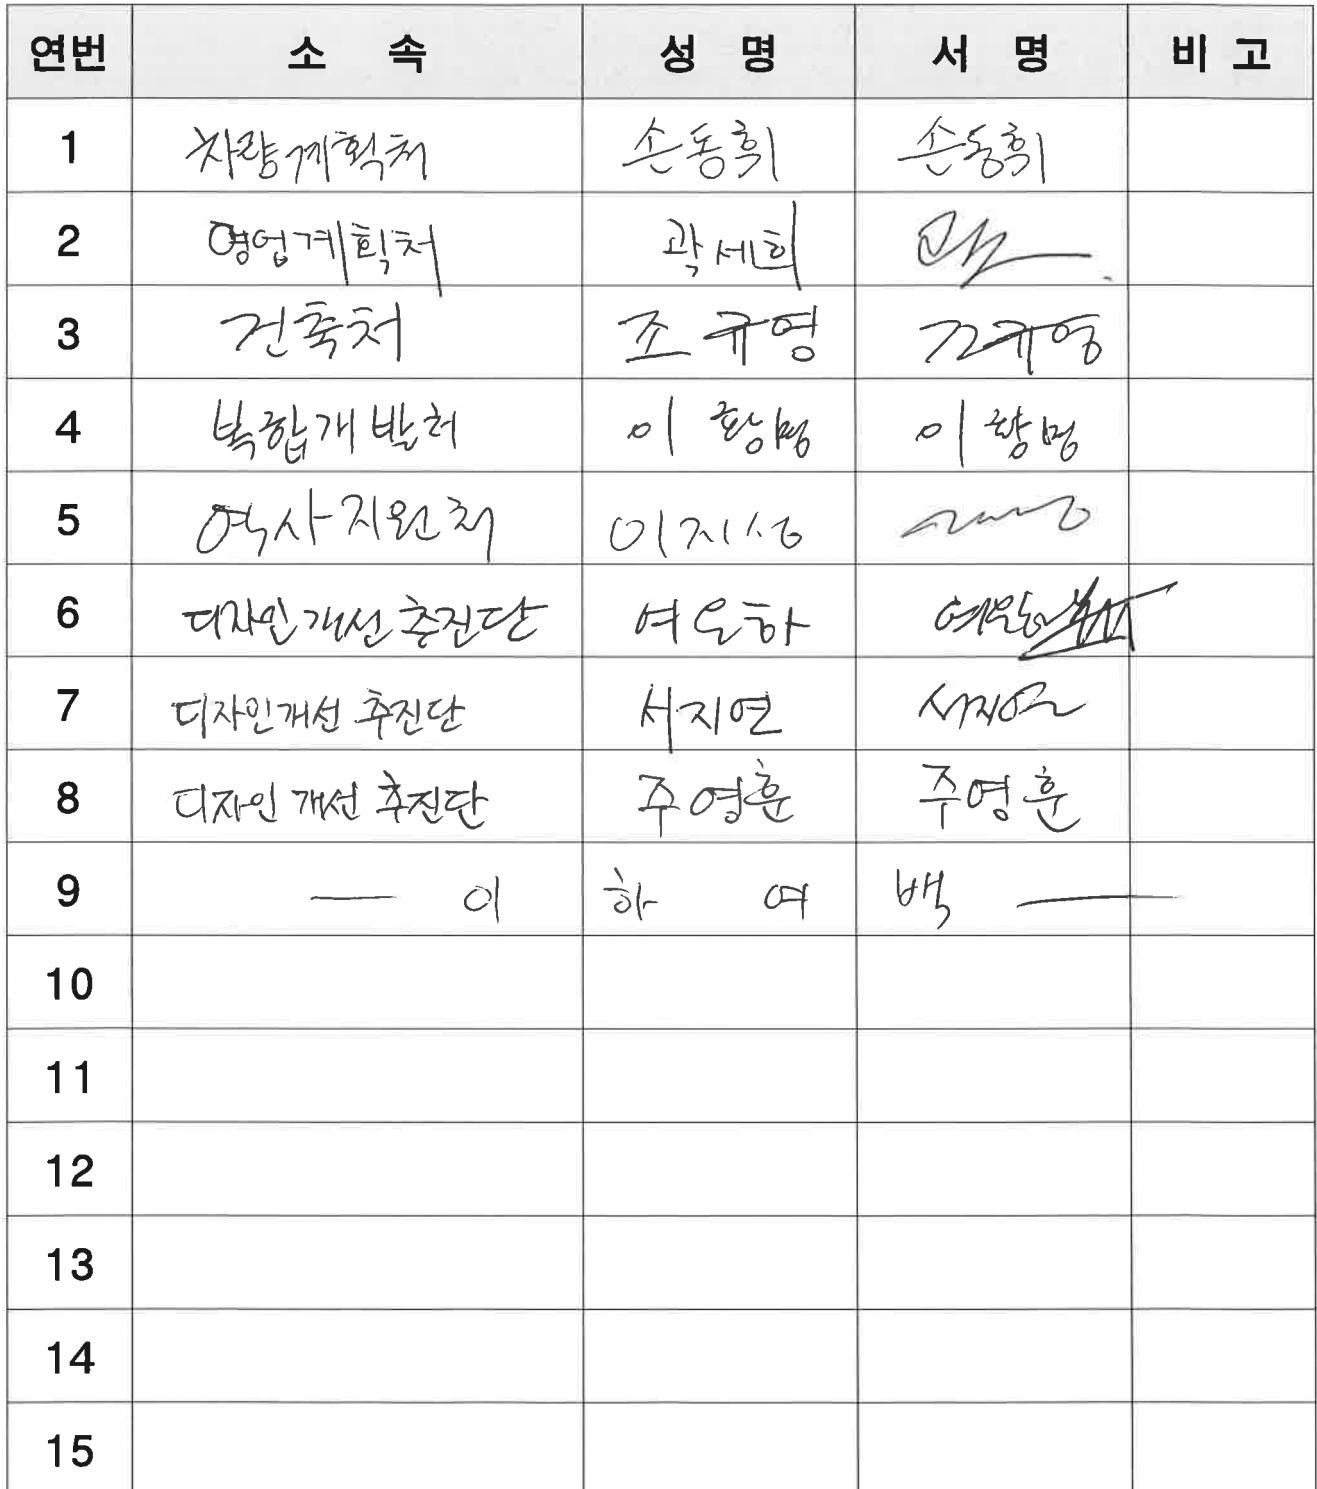 연번 소 속 성 명 서 명 비 고
1 차량계획처 손동휘 손동휘
2 영업계획처 곽세희
3 건축처 조규영 조규영
4 복합개발처 이황명 이황명
5 역사지원처 이지성
6 디자인개선추진단 여은하
7 디자인개선 추진단 서지연 서지연
8 디자인 개선 추진단 주영훈 주영훈
9 이 하 여 백
10
11
12
13
14
15